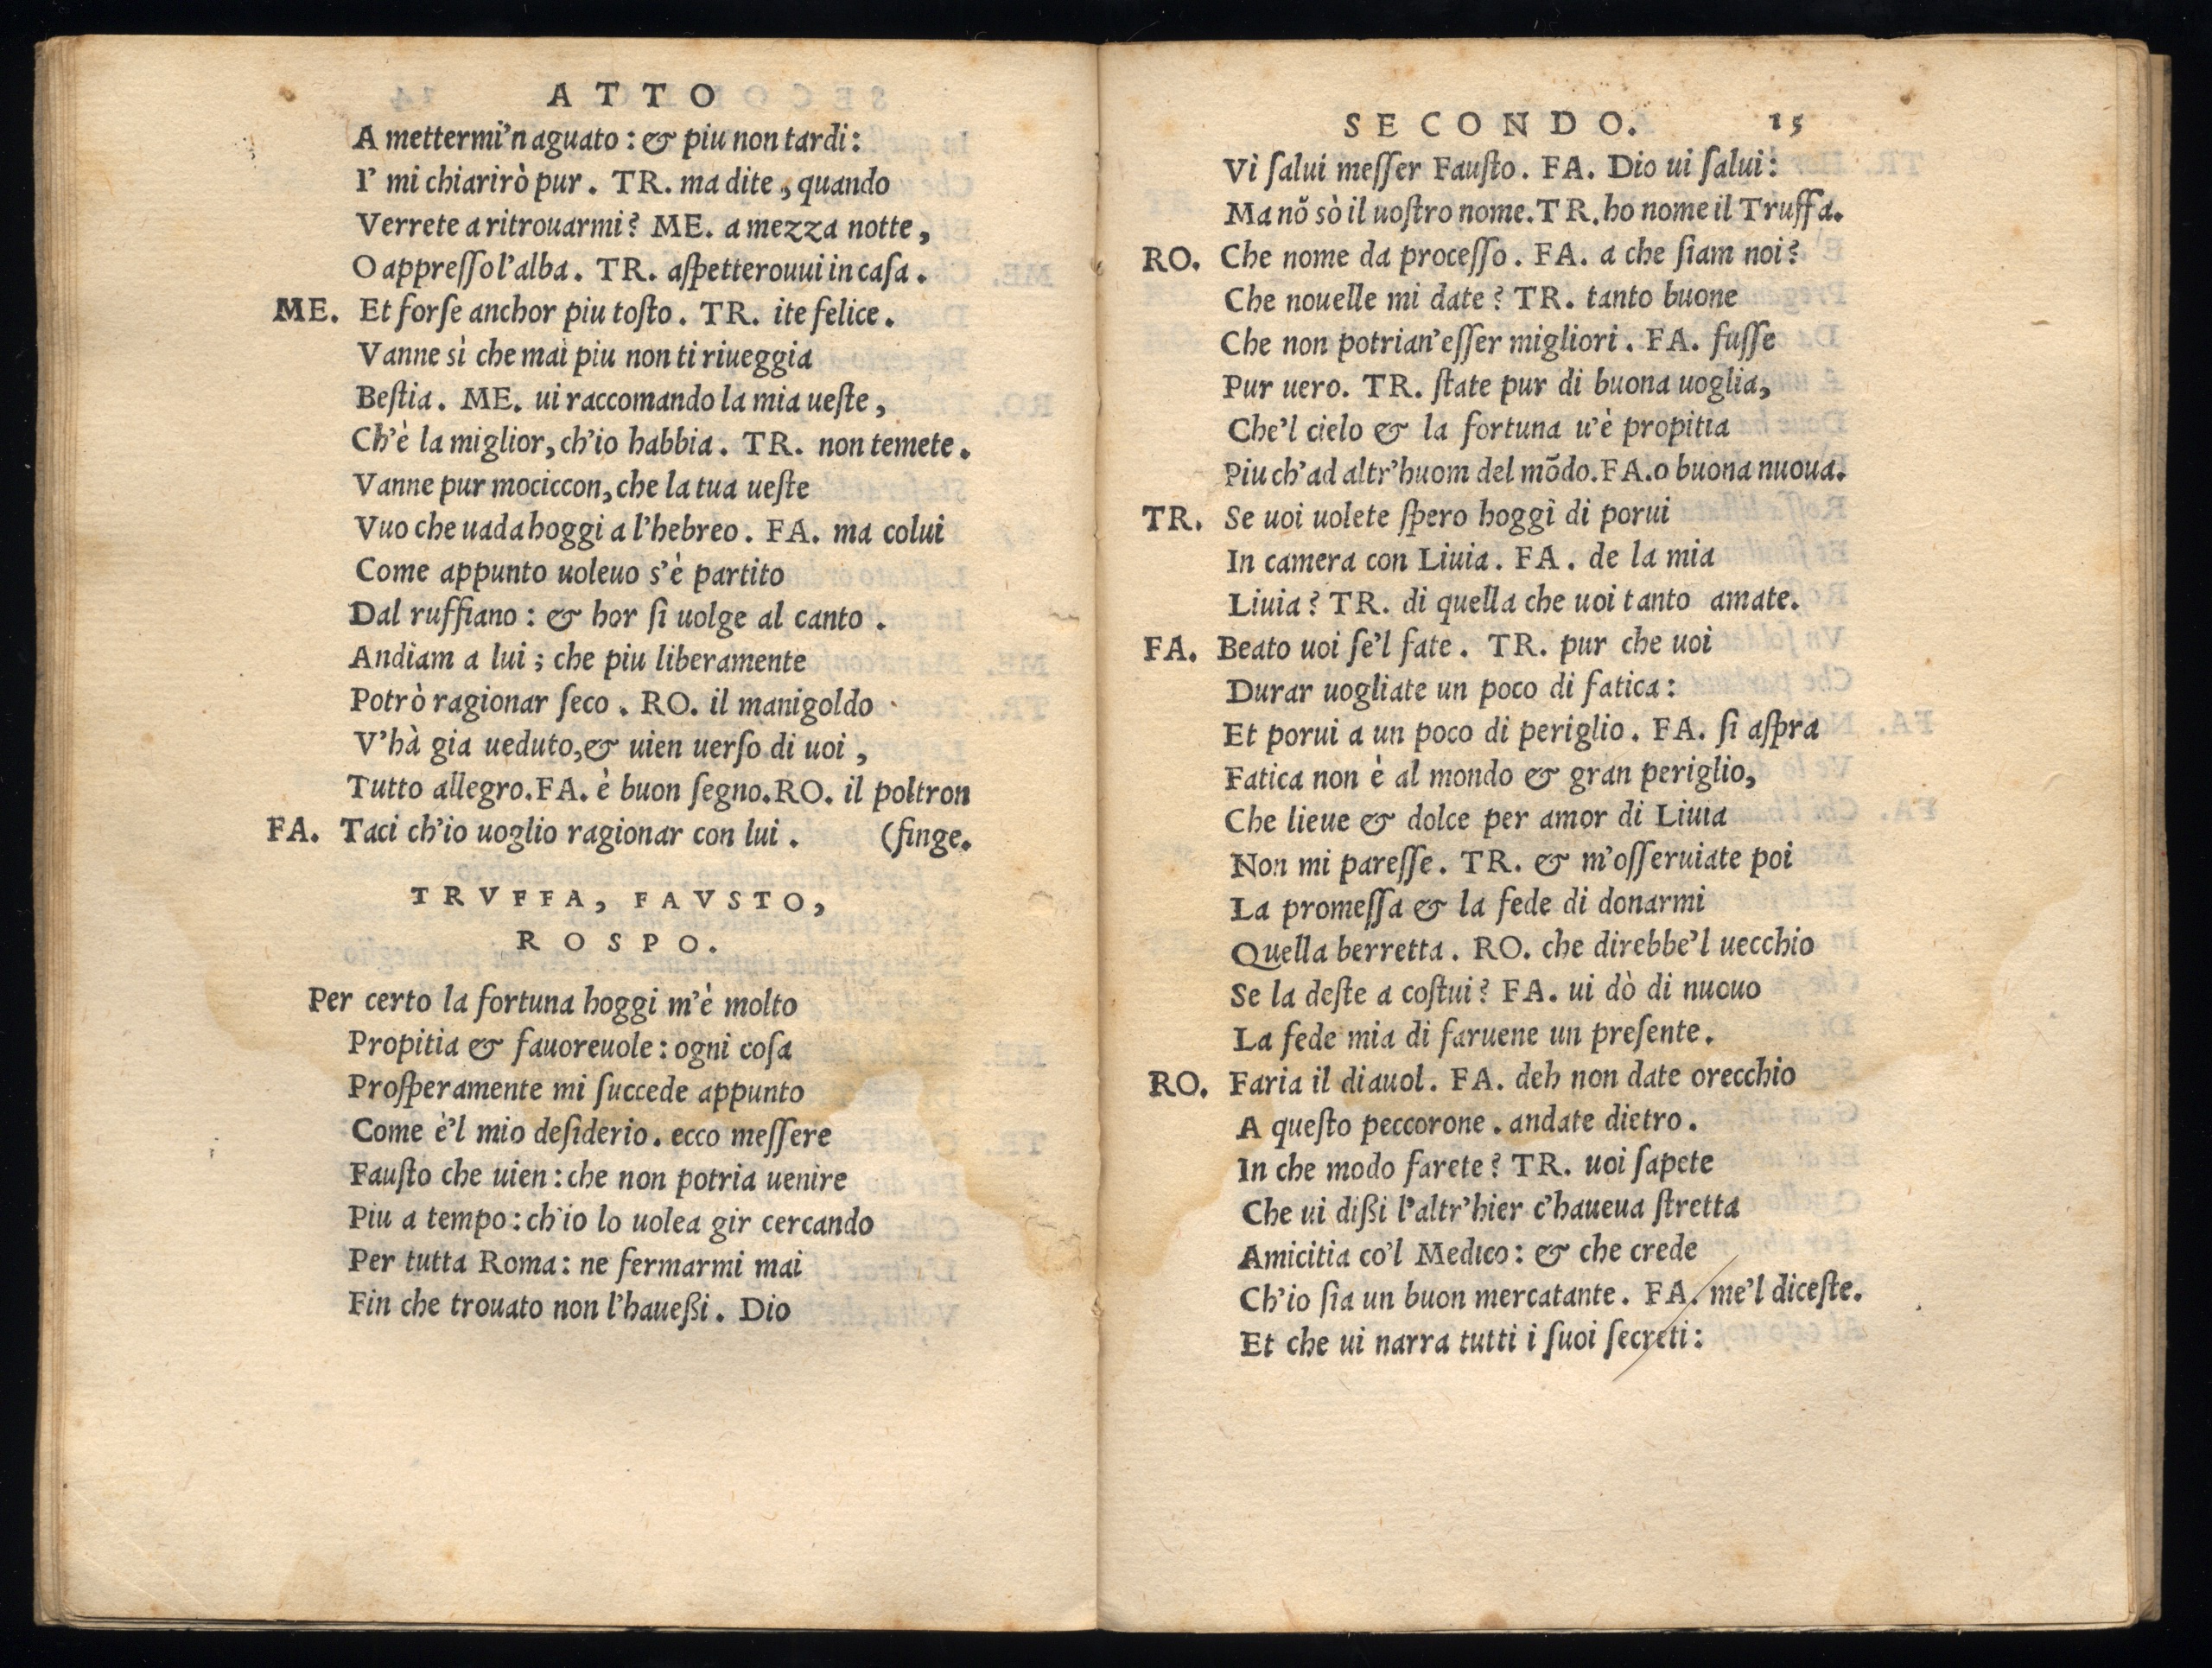 ATTO
A mettermi'n aguato: & piu non tardi:
I' mi chiarirò pur. TR. ma dite, quando
Verrete a ritrouarmi? ME. a mezza notte,
O appreſſo l'alba. TR. aſpetterouui in caſa.
ME. Et forſe anchor piu toſto. TR. ite felice.
Vanne sì che mai piu non ti riueggia
Beſtia. ME. ui raccomando la mia ueſte,
Ch'è la miglior, ch'io habbia. TR. non temete.
Vanne pur mociccon, che la tua ueſte
Vuo che uada hoggi a l'hebreo. FA. ma colui
Come appunto uoleuo s'è partito
Dal ruffiano: & hor ſi uolge al canto.
Andiam a lui; che piu liberamente
Potrò ragionar ſeco. RO. il manigoldo
V'hà gia ueduto, & uien uerſo di uoi,
Tutto allegro. FA. è buon ſegno. RO. il poltron
FA. Taci ch'io uoglio ragionar con lui. (finge.
TRVFFA, FAVSTO,
ROSPO.
Per certo la fortuna hoggi m'è molto
Propitia & fauoreuole: ogni coſa
Proſperamente mi ſuccede appunto
Come è'l mio deſiderio. ecco meſſere
Fauſto che uien: che non potria uenire
Piu a tempo: ch'io lo uolea gir cercando
Per tutta Roma: ne fermarmi mai
Fin che trouato non l'haueßi. Dio
SECONDO. 15
Vi ſalui meſſer Fauſto. FA. Dio ui ſalui:
Ma nõ sò il uoſtro nome. TR. ho nome il Truffa.
RO. Che nome da proceſſo. FA. a che ſiam noi?
Che nouelle mi date? TR. tanto buone
Che non potrian'eſſer migliori. FA. fuſſe
Pur uero. TR. ſtate pur di buona uoglia,
Che'l cielo & la fortuna u'è propitia
Piu ch'ad altr'huom del mõdo. FA. o buona nuoua.
TR. Se uoi uolete ſpero hoggi di porui
In camera con Liuia. FA. de la mia
Liuia? TR. di quella che uoi tanto amate.
FA. Beato uoi ſe'l fate. TR. pur che uoi
Durar uogliate un poco di fatica:
Et porui a un poco di periglio. FA. ſi aſpra
Fatica non è al mondo & gran periglio,
Che lieue & dolce per amor di Liuia
Non mi pareſſe. TR. & m'oſſeruiate poi
La promeſſa & la fede di donarmi
Quella berretta. RO. che direbbe'l uecchio
Se la deſte a coſtui? FA. ui dò di nuouo
La fede mia di faruene un preſente.
RO. Faria il diauol. FA. deh non date orecchio
A queſto peccorone. andate dietro.
In che modo farete? TR. uoi ſapete
Che ui dißi l'altr'hier c'haueua ſtretta
Amicitia co'l Medico: & che crede
Ch'io ſia un buon mercatante. FA. me'l diceſte.
Et che ui narra tutti i ſuoi ſecreti: